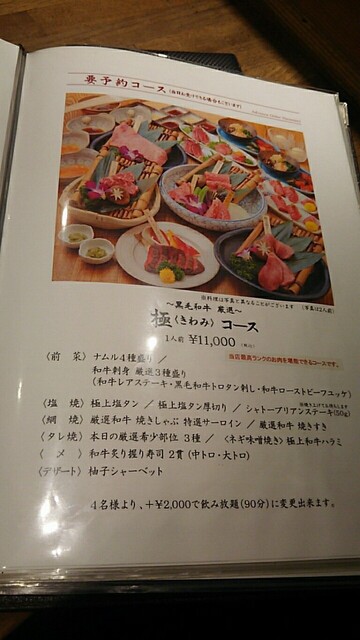 要予約コース（当日お受けできる場合もございます）
※料理は写真と異なることがございます （写真は2人前）
〜黒毛和牛 厳選〜
極〈きわみ〉コース
1人前 ¥11,000（税込）
当店最高ランクのお肉を堪能できるコースです。
〈前 菜〉ナムル4種盛り／
和牛刺身 厳選3種盛り
（和牛レアステーキ・黒毛和牛トロタン刺し・和牛ローストビーフユッケ）
〈塩 焼〉極上塩タン ／ 極上塩タン厚切り ／ シャトーブリアンステーキ(50g)
〈網 焼〉厳選和牛 焼きしゃぶ 特選サーロイン ／ 厳選和牛 焼きすき
〈タレ焼〉本日の厳選希少部位 3種 ／ 〈ネギ味噌焼き〉極上和牛ハラミ
〈〆〉和牛炙り握り寿司 2貫（中トロ・大トロ）
〈デザート〉柚子シャーベット
4名様より、＋¥2,000で飲み放題(90分)に変更出来ます。